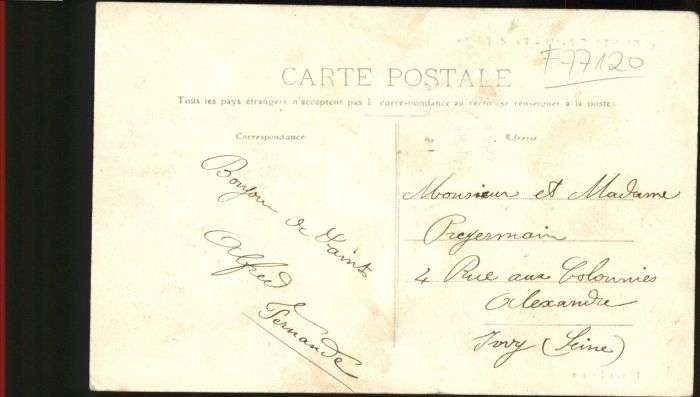 F77120
CARTE POSTALE
Tous les pays étrangers n'acceptent pas la correspondance au recto, se renseigner à la poste.
Correspondance
Adresse
Bonjour de Saint
Alfred
Fernande
Monsieur et Madame
Preyermain
4 Rue aux Colonnies
Alexandre
Ivry (Seine)